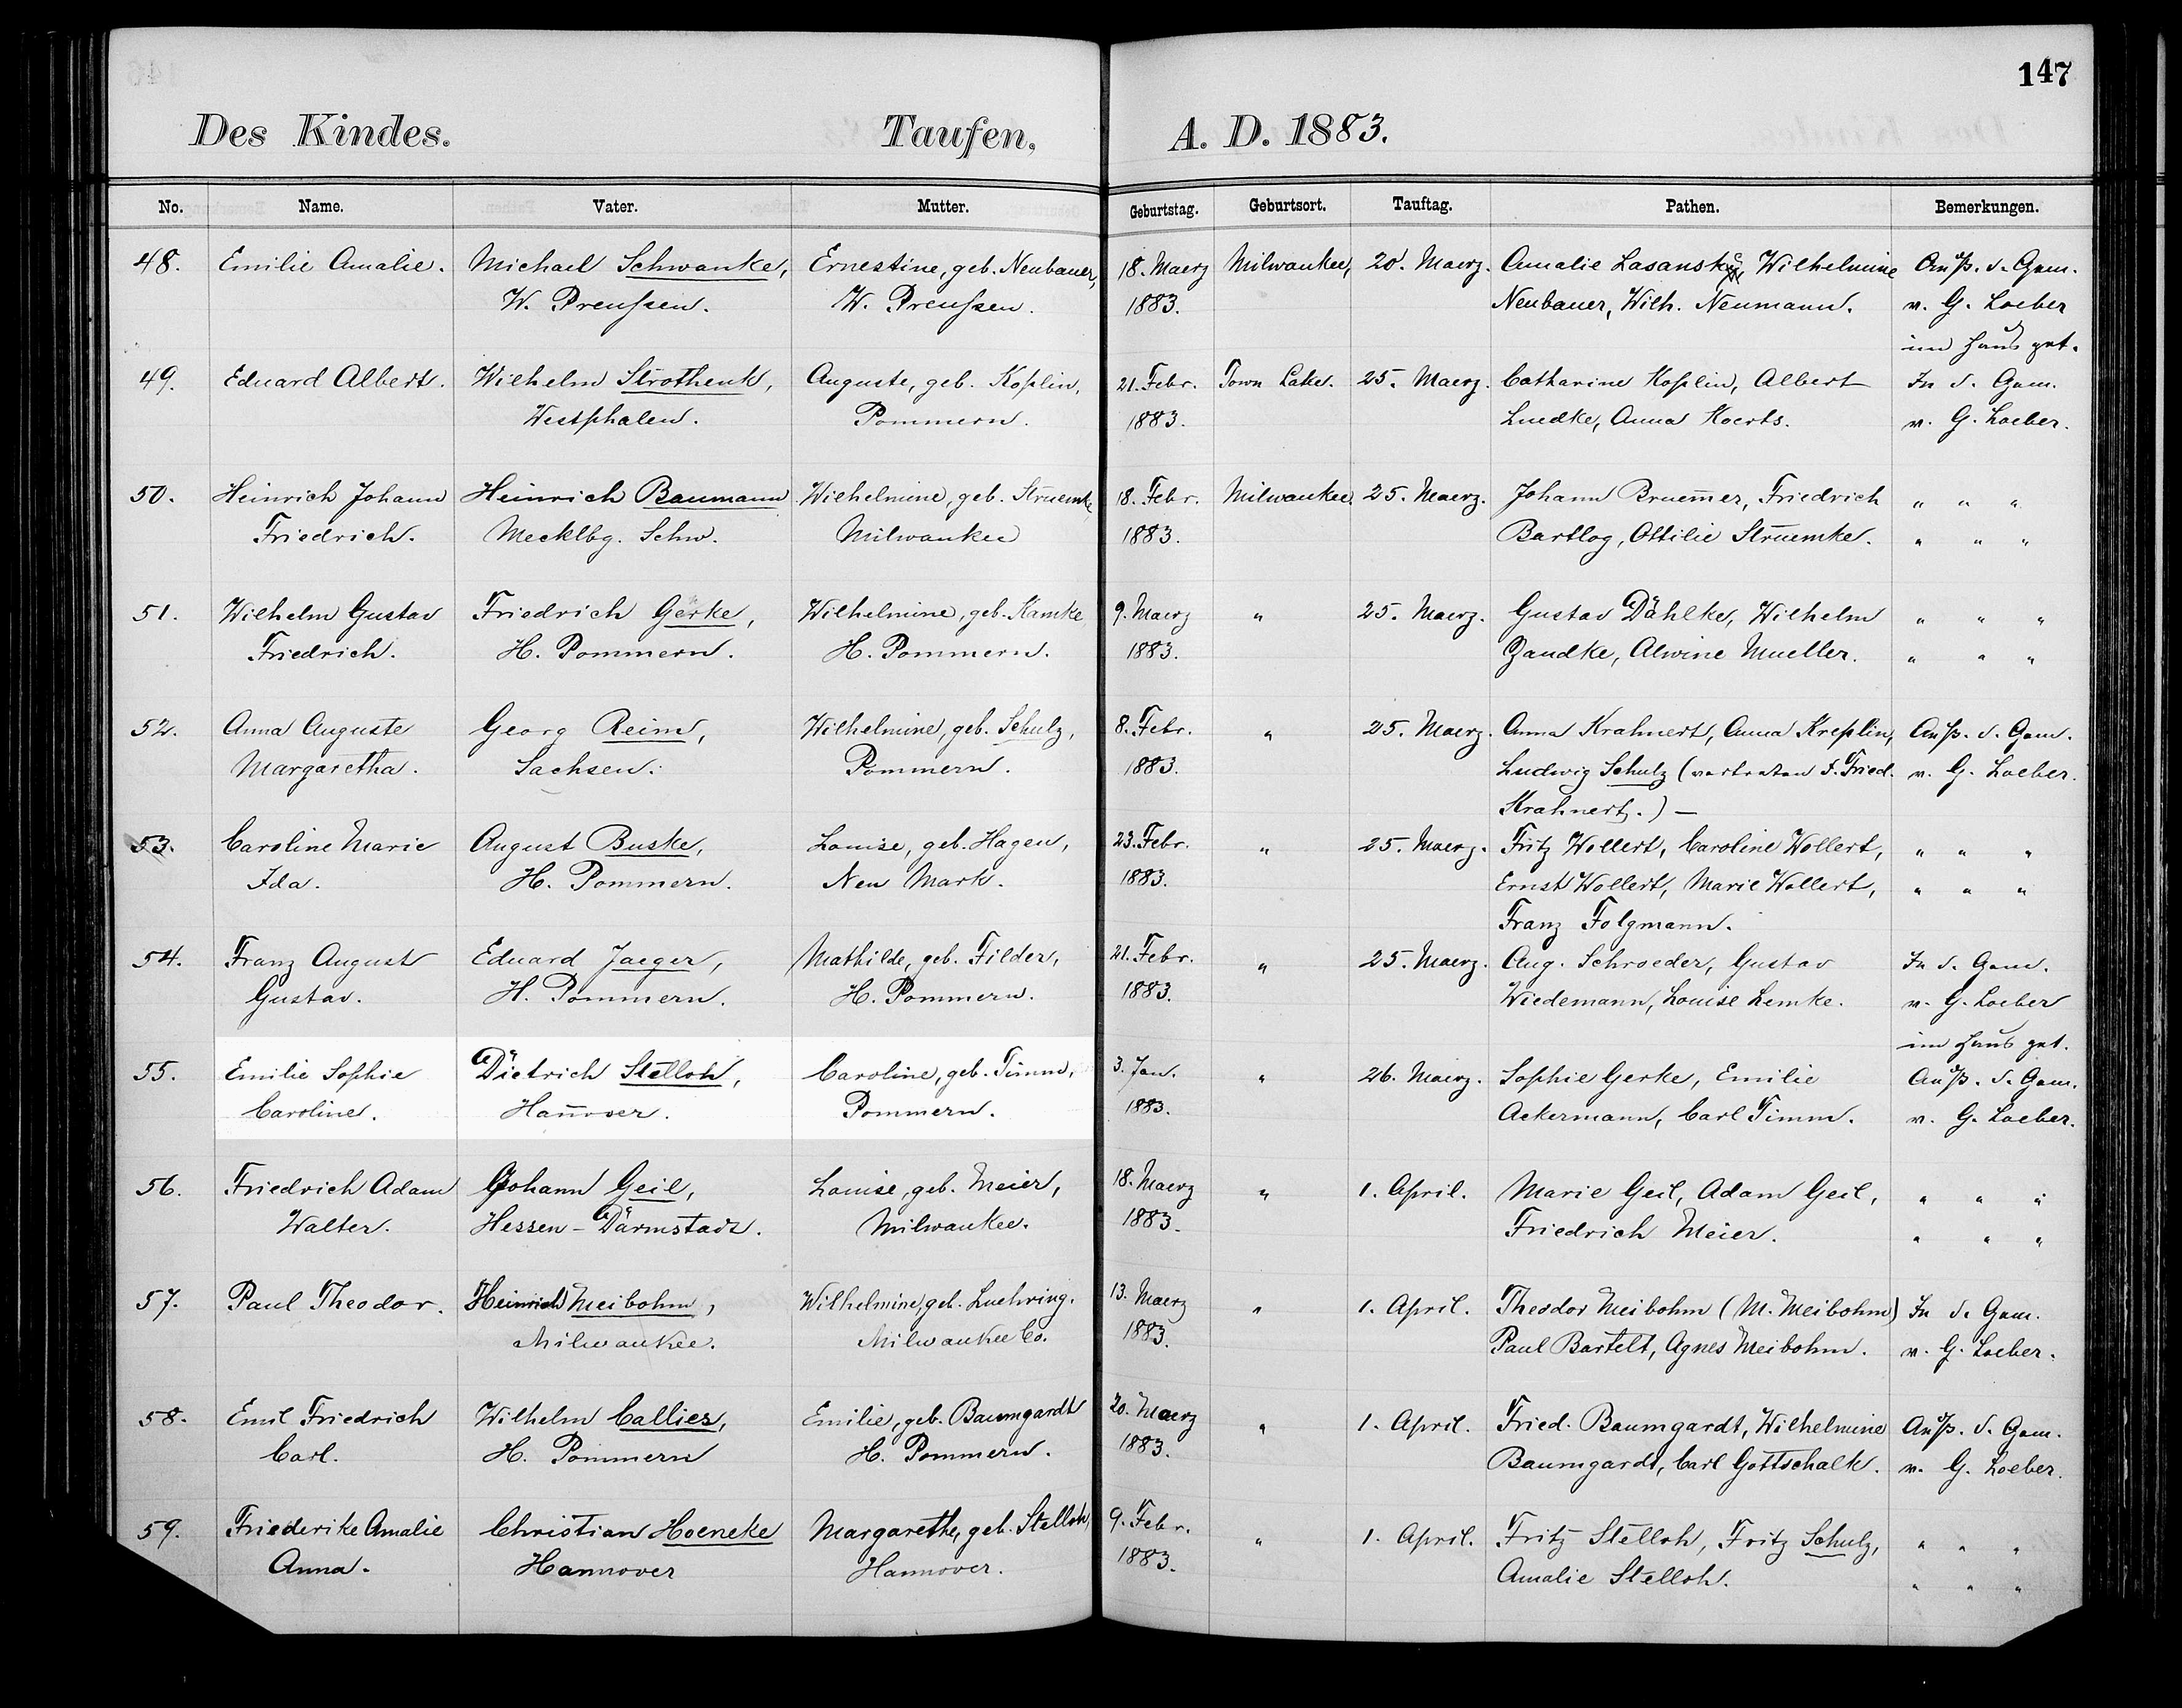 147
Des Kindes. Taufen, A. D. 1883.
No. Name. Vater. Mutter. Geburtstag. Geburtsort. Tauftag. Pathen. Bemerkungen.
48. Emilie Amalie. Michael Schwanke, Ernestine, geb. Neubauer, 18. Maerz Milwaukee, 20. Maerz. Amalie Wilhelmine Auß. d. Gem.
W. Preußen. W. Preußen. 1883. Neubauer, Wilh. Neumann. v. G. Loeber
im Haus get.
49. Eduard Albert. Wilhelm Strothenk, Auguste, geb. Koplin, 21. Febr. Town Lake. 25. Maerz. Catharine Koplin, Albert In d. Gem.
Westphalen. Pommern. 1883. Luedke, Anna Koerts. v. G. Loeber.
50. Heinrich Johann Heinrich Baumann Wilhelmine, geb. Struemke 18. Febr. Milwaukee. 25. Maerz. Johann Bruem̄er, Friedrich " " "
Friedrich. Mecklbg. Schw. Milwaukee 1883. Bartlog, Ottilie Struemke. " " "
51. Wilhelm Gustav Friedrich Gerke, Wilhelmine, geb. Kamke 9. Maerz " 25. Maerz. Gustav Dahlke, Wilhelm " " "
Friedrich. H. Pommern. H. Pommern. 1883. Zandke, Alwine Mueller. " " "
52. Anna Auguste Georg Reim, Wilhelmine, geb. Schulz, 8. Febr. " 25. Maerz. Anna Krahnert, Anna Kreplin, Auß. d. Gem.
Margaretha. Sachsen. Pommern. 1883. Ludwig Schulz (vertreten d. Fried. v. G. Loeber.
Krahnert.) —
53. Caroline Marie August Buske, Louise, geb. Hagen, 23. Febr. " 25. Maerz. Fritz Wollert, Caroline Wollert, " " "
Ida. H. Pommern. Neu Mark. 1883. Ernst Wollert, Marie Wollert, " " "
Franz Folgmann.
54. Franz August Eduard Jaeger, Mathilde, geb. Filder, 21. Febr. " 25. Maerz. Aug. Schroeder, Gustav In d. Gem.
Gustav. H. Pommern. H. Pommern. 1883. Wiedemann, Louise Lemke. v. G. Loeber
im Haus get.
55. Emilie Sophie Dietrich Stelloh, Caroline, geb. Timm, 3. Jan. " 26. Maerz. Sophie Gerke, Emilie Auß. d. Gem.
Caroline. Han̄over. Pommern. 1883. Ackermann, Carl Timm. v. G. Loeber.
56. Friedrich Adam Johann Geil, Louise, geb. Meier, 18. Maerz " 1. April. Marie Geil, Adam Geil, " " "
Walter. Hessen-Darmstadt. Milwaukee. 1883. Friedrich Meier. " " "
57. Paul Theodor. Heinrich Meibohm, Wilhelmine, geb. Luehring. 13. Maerz " 1. April. Theodor Meibohm (M. Meibohm) In d. Gem.
Milwaukee. Milwaukee Co. 1883. Paul Bartelt, Agnes Meibohm. v. G. Loeber.
58. Emil Friedrich Wilhelm Callies, Emilie, geb. Baumgardt 20. Maerz " 1. April. Fried. Baumgardt, Wilhelmine Auß. d. Gem.
Carl. H. Pommern H. Pommern. 1883. Baumgardt, Carl Gottschalk. v. G. Loeber.
59. Friederike Amalie Christian Hoeneke Margarethe, geb. Stelloh, 9. Febr. " 1. April. Fritz Stelloh, Fritz Schulz, " " "
Anna. Hannover Hannover. 1883. Amalie Stelloh. " " "